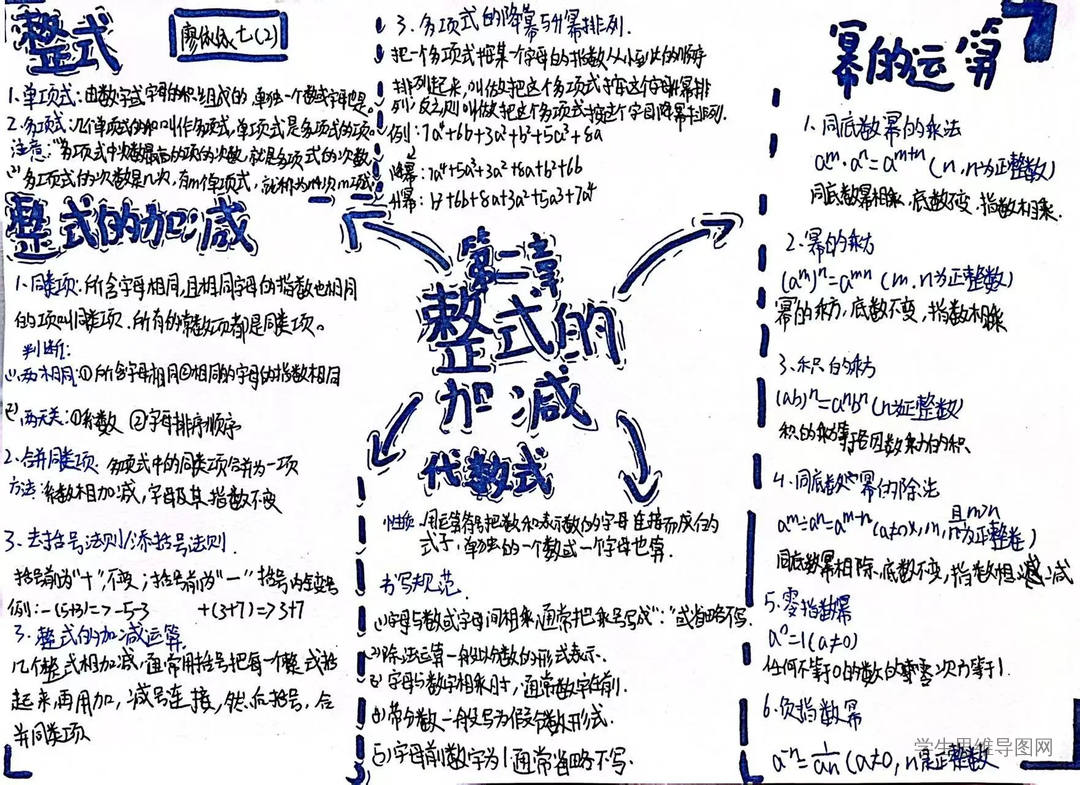 整式
廖依依 七(2)
1.单项式:由数字或字母的积组成的,单独一个数或字母也是。
2.多项式:几个单项式的和叫作多项式,单项式是多项式的项。
注意:(1)多项式中次数最高的项的次数,就是多项式的次数
(2)多项式的次数是几次,有m个单项式,就称为n次m项式
3.多项式的降幂与升幂排列.
把一个多项式按某一字母的指数从小到大的顺序
排列起来,叫做把这个多项式按这个字母幂排
列,反之则叫做把这个多项式按这个字母降幂排列.
例:7a⁴+6b+3a²+b²+5a³+8a
降幂:7a⁴+5a³+3a²+8a+b²+6b
升幂:b²+6b+8a+3a²+5a³+7a⁴
整式的加减
1.同类项:所含字母相同,且相同字母的指数也相同
的项叫同类项,所有的常数项都是同类项。
判断:
(1)两相同:①所含字母相同②相同的字母的指数相同
(2)两无关:①系数 ②字母排序顺序
2.合并同类项:多项式中的同类项合并为一项
方法:系数相加减,字母及其指数不变
3.去括号法则/添括号法则.
括号前为"+",不变;括号前为"一"括号内全变号
例:-(5+3)=>-5-3 +(3+7)=>3+7
3.整式的加减运算.
几个整式相加减,通常用括号把每一个整式括
起来再用加,减号连接,然后括号,合
并同类项
第二章
整式的
加减
代数式
性质:用运算符号把数和表示数的字母连接而成的
式子,单独的一个数或一个字母也算.
书写规范.
(1)字母与数或字母间相乘,通常把乘号写成"·"或省略不写.
(2)除法运算一般以分数的形式表示.
(3)字母与数字相乘时,通常数字在前.
(4)带分数一般写为假分数形式.
(5)字母前数字为1通常省略不写.
幂的运算
1.同底数幂的乘法
aᵐ·aⁿ=aᵐ⁺ⁿ(n,n为正整数)
同底数幂相乘.底数不变.指数相乘.
2.幂的乘方
(aᵐ)ⁿ=aᵐⁿ(m,n为正整数)
幂的乘方,底数不变,指数相乘
3.积的乘方
(ab)ⁿ=aⁿbⁿ(n为正整数)
积的乘方等于各因数乘方的积
4.同底数幂的除法
aᵐ÷aⁿ=aᵐ⁻ⁿ(a≠0,m,n为正整数,且m>n)
同底数幂相除.底数不变,指数相减
5.零指数幂
a⁰=1(a≠0)
任何不等于0的数的零次方等于1.
6.负指数幂
a⁻ⁿ=1/aⁿ(a≠0,n是正整数
学生思维导图网